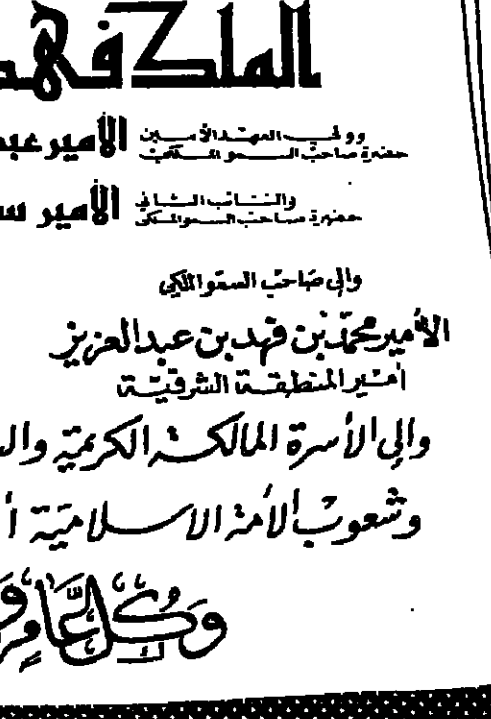 الملك فهد
وولي العهد الأمين
حضرة صاحب السمو الملكي
الأمير عبد
والنائب الثاني
حضرة صاحب السمو الملكي
الأمير
والى صاحب السمو الملكي
الأمير محمد بن فهد بن عبد العزيز
أمير المنطقة الشرقية
والى الأسرة المالكة الكريمة
وشعوب الأمة الاسلامية
وكل عام